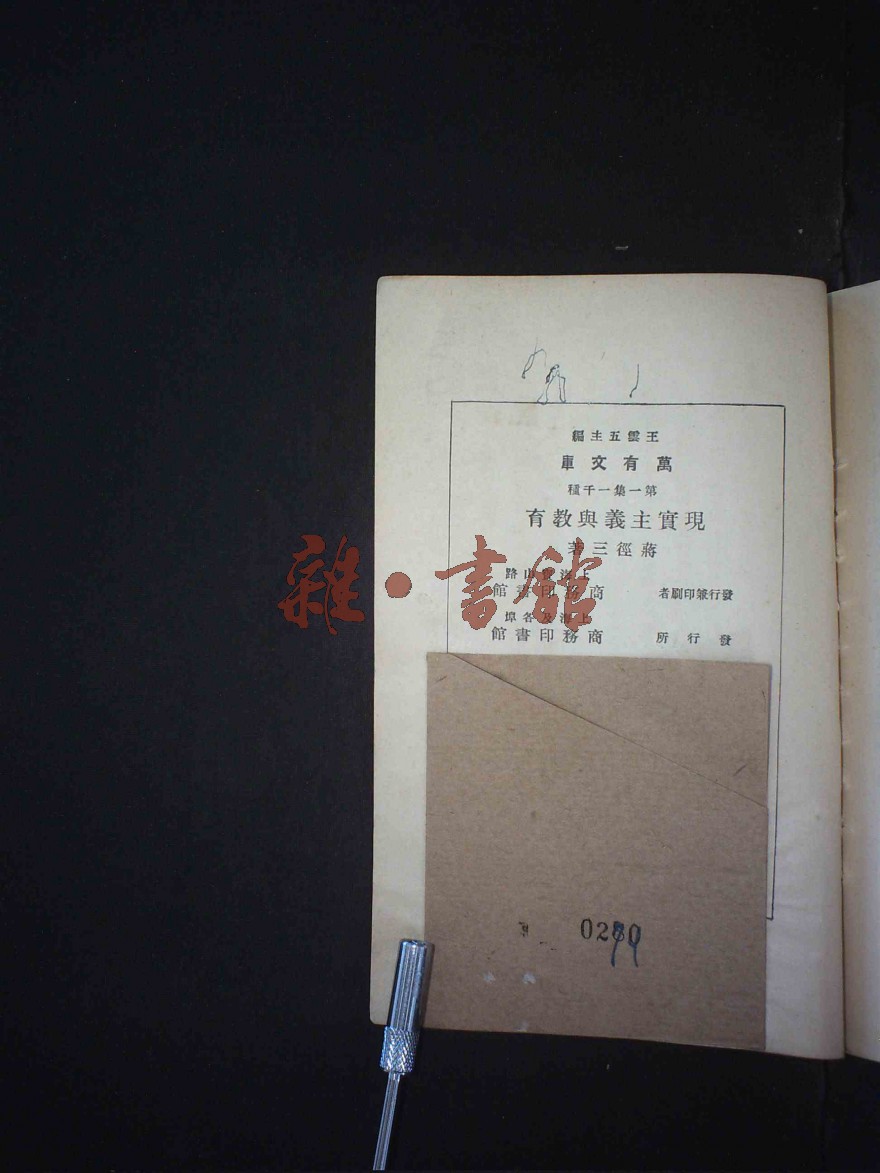 王雲五主編
萬有文庫
第一集一千種
現實主義與教育
蔣徑三著
上海寶山路
發行兼印刷者 商務印書館
上海及各埠
發行所 商務印書館
雜·書館